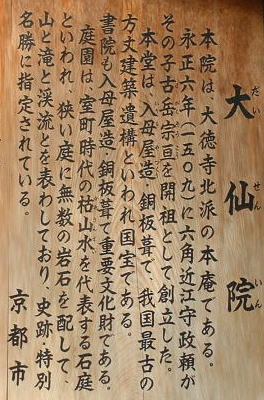 大仙院
だいせんいん
本院は、大徳寺北派の本庵である。
永正六年（一五〇九）に六角近江守政頼が
その子古岳宗亘を開祖として創立した。
本堂は、入母屋造・銅板葺で、我国最古の
方丈建築遺構といわれ国宝である。
書院も入母屋造・銅板葺で重要文化財である。
庭園は、室町時代の枯山水を代表する石庭
といわれ、狭い庭に無数の岩石を配して、
山と滝と渓流とを表わしており、史跡・特別
名勝に指定されている。
京都市